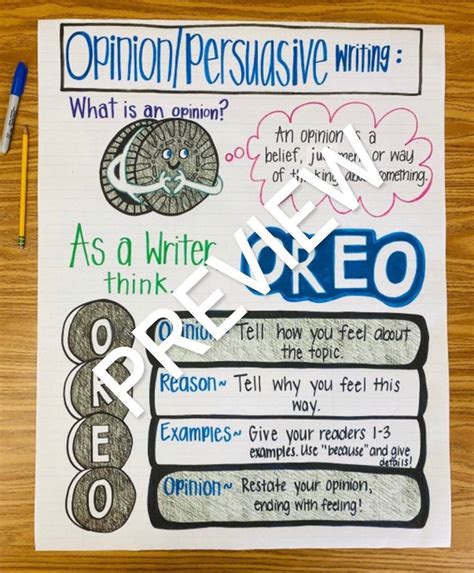 Opinion/Persuasive Writing:
What is an opinion?
An opinion is a
belief, judgment, or way
of thinking about something.
As a Writer
think...
OREO
O
R
E
O
Opinion~ Tell how you feel about
the topic.
Reason~ Tell why you feel this
way.
Examples~ Give your readers 1-3
examples. Use "because" and give
details!
Opinion~ Restate your opinion,
ending with feeling!
PREVIEW